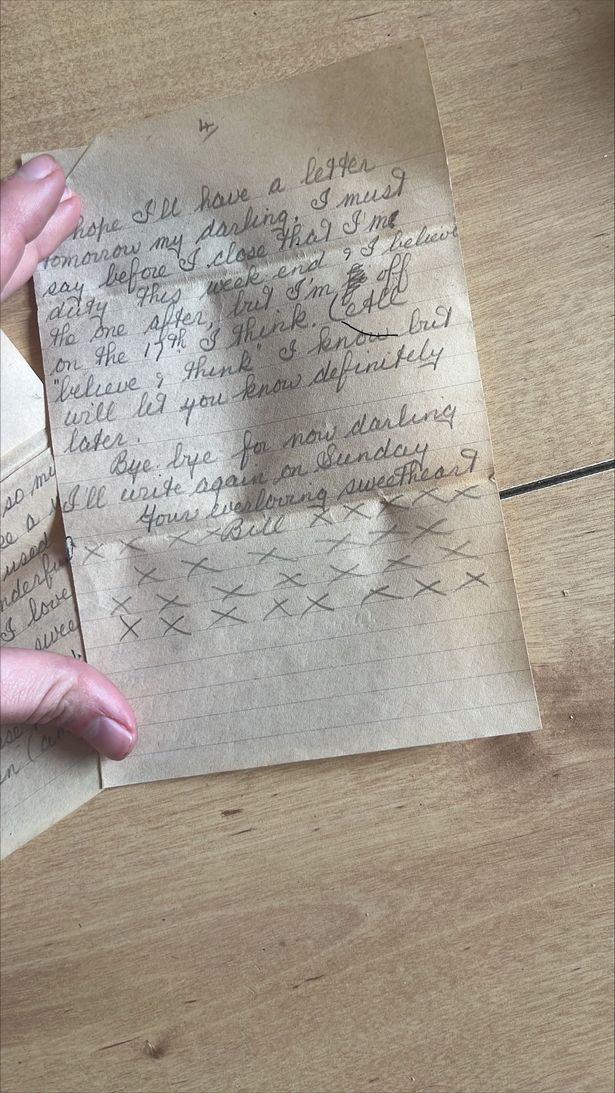 4
hope I'll have a letter
tomorrow my darling. I must
say before I close that I'm
duty this week end & I believe
the one after, but I'm off
on the 17th I think. (All
"believe & think" I know but
will let you know definitely
later.
Bye bye for now darling
I'll write again on Sunday
Your everloving sweetheart
x x x x Bill x x x x x
x x x x x x x
x x x x x x
x x x x x x x x
so
I love